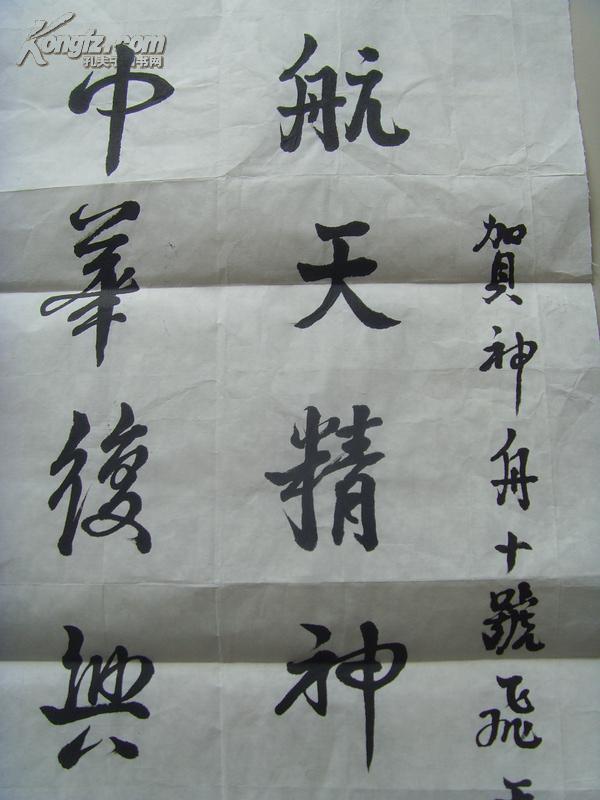 賀神舟十號飛天
航天精神
中華復興
Kongfz.com
孔夫子旧书网